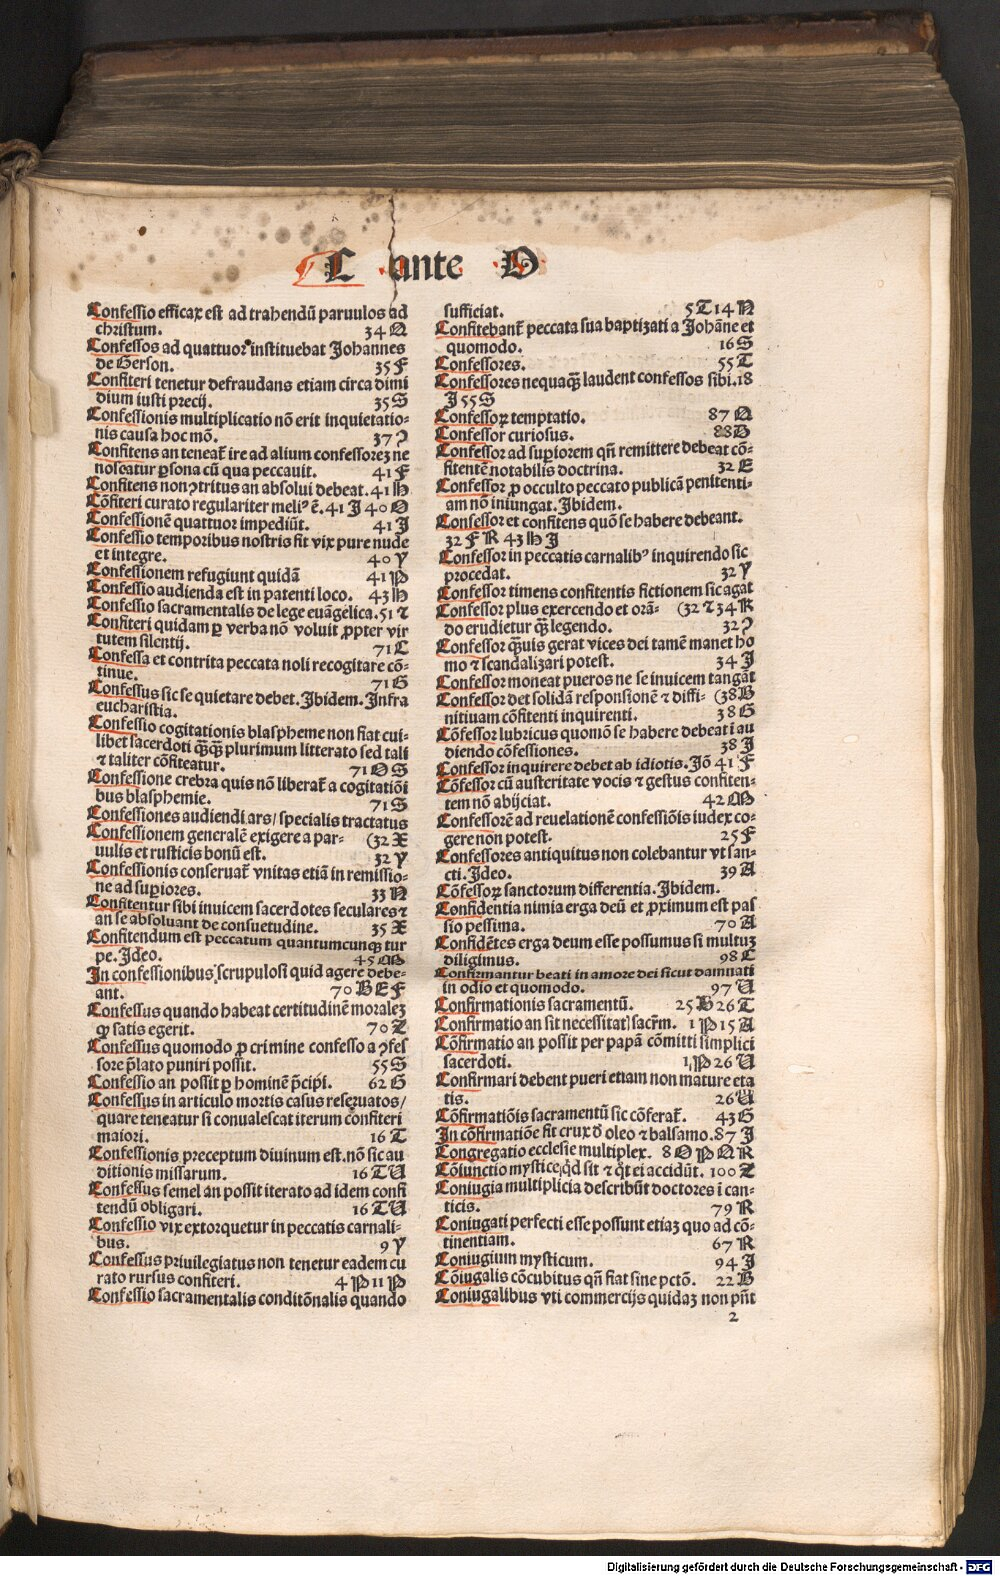 C ante O
Confessio efficax est ad trahendū paruulos ad
christum. 34 Q
Confessos ad quattuor instituebat Johannes
de Gerson. 35 F
Confiteri tenetur defraudans etiam circa dimi
dium iusti precij. 35 S
Confessionis multiplicatio nō erit inquietatio-
nis causa hoc mō. 37 ?
Confitens an teneat̄ ire ad alium confessorez ne
noscatur ꝑsona cū qua peccauit. 41 F
Confitens non ꝯtritus an absolui debeat. 41 H
Cōfiteri curato regulariter meliꝰ ē. 41 J 40 O
Confessionē quattuor impediūt. 41 J
Confessio temporibus nostris fit vix pure nude
et integre. 40 Y
Confessionem refugiunt quidā 41 P
Confessio audienda est in patenti loco. 43 H
Confessio sacramentalis de lege euāgelica. 51 ⁊
Confiteri quidam ꝑ verba nō voluit ꝓpter vir
tutem silentij. 71 C
Confessa et contrita peccata noli recogitare cō-
tinue. 71 G
Confessus sic se quietare debet. Ibidem. Infra
eucharistia.
Confessio cogitationis blaspheme non fiat cui-
libet sacerdoti qͣ̄qͣ̄ plurimum litterato sed tali
⁊ taliter cōfiteatur. 71 O S
Confessione crebra quis nō liberat̄ a cogitatiōi
bus blasphemie. 71 S
Confessiones audiendi ars/ specialis tractatus
Confessionem generalē exigere a par- (32 X
uulis et rusticis bonū est. 32 Y
Confessionis conseruat̄ vnitas etiā in remissio-
ne ad suꝑiores. 33 N
Confitentur sibi inuicem sacerdotes seculares ⁊
an se absoluant de consuetudine. 35 X
Confitendum est peccatum quantumcunqꝫ tur
pe. Ideo. 45 M
In confessionibus scrupulosi quid agere debe-
ant. 70 B E F
Confessus quando habeat certitudinē moralez
ꝙ satis egerit. 70 Z
Confessus quomodo ꝓ crimine confesso a ꝯfes
sore p̄lato puniri possit. 55 S
Confessio an possit ꝑ hominē p̄cipi. 62 G
Confessus in articulo mortis casus reseruatos/
quare teneatur si conualescat iterum cōnfiteri
maiori. 16 T
Confessionis preceptum diuinum est. nō sic au
ditionis missarum. 16 T U
Confessus semel an possit iterato ad idem confi
tendū obligari. 16 T U
Confessio vix extorquetur in peccatis carnali-
bus. 9 Y
Confessus priuilegiatus non tenetur eadem cu
rato rursus confiteri. 4 P 11 P
Confessio sacramentalis conditōnalis quando
sufficiat. 5 T 14 N
Confitebant̄ peccata sua baptizati a Johāne et
quomodo. 16 S
Confessores. 55 T
Confessores nequaqͣ̄ laudent confessos sibi. 18
J 55 S
Confessoꝝ temptatio. 87 Q
Confessor curiosus. 88 B
Confessor ad suꝑiorem qn̄ remittere debeat cō-
fitentē notabilis doctrina. 32 E
Confessor ꝓ occulto peccato publicā penitenti-
am nō iniungat. Ibidem.
Confessor et confitens quō se habere debeant.
32 F R 43 H J
Confessor in peccatis carnalibꝰ inquirendo sic
procedat. 32 Y
Confessor timens confitentis fictionem sic agat
Confessor plus exercendo et orā- (32 ⁊ 34 R
do erudietur qͣ̄ legendo. 32 ?
Confessor qͣ̄uis gerat vices dei tamē manet ho
mo ⁊ scandalizari potest. 34 J
Confessor moneat pueros ne se inuicem tangāt
Confessor det solidā responsionē ⁊ diffi- (38 B
nitiuam cōfitenti inquirenti. 38 G
Cōfessor lubricus quomō se habere debeat ī au
diendo cōfessiones. 38 J
Confessor inquirere debet ab idiotis. Jō 41 F
Cōfessor cū austeritate vocis ⁊ gestus confiten-
tem nō abijciat. 42 M
Confessorē ad reuelationē confessiōis iudex co-
gere non potest. 25 F
Confessores antiquitus non colebantur vt san-
cti. Ideo. 39 A
Cōfessoꝝ sanctorum differentia. Ibidem.
Confidentia nimia erga deū et ꝓximum est pas
sio pessima. 70 A
Confidētes erga deum esse possumus si multuz
diligimus. 98 C
Confirmantur beati in amore dei sicut damnati
in odio et quomodo. 97 U
Confirmationis sacramentū. 25 B 26 T
Confirmatio an sit necessitatꝭ sacr̄m. 1 P 15 A
Cōfirmatio an possit per papā cōmitti simplici
sacerdoti. 1 P 26 U
Confirmari debent pueri etiam non mature eta
tis. 26 U
Cōfirmatiōis sacramentū sic cōferat̄. 43 G
In cōfirmatiōe fit crux d̄ oleo ⁊ balsamo. 87 J
Congregatio ecclesie multiplex. 8 O P Q R
Cōiunctio mystice qd̄ sit ⁊ qͣ̄t ei accidūt. 100 Z
Coniugia multiplicia describūt doctores ī can-
ticis. 79 R
Coniugati perfecti esse possunt etiaz quo ad cō-
tinentiam. 67 R
Coniugium mysticum. 94 J
Cōiugalis cōcubitus qn̄ fiat sine pctō. 22 B
Coniugalibus vti commercijs quidaz non pn̄t
2
Digitalisierung gefördert durch die Deutsche Forschungsgemeinschaft - DFG